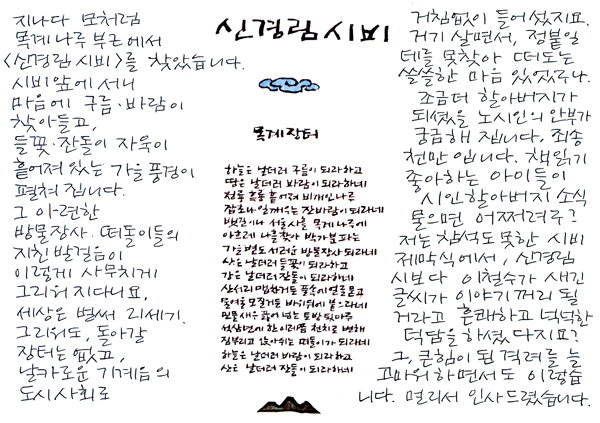 지나다 모처럼
목계나루 부근에서
<신경림 시비>를 찾았습니다.
시비앞에 서니
마음에 구름·바람이
찾아들고,
들꽃·잔돌이 자욱이
흩어져 있는 가을 풍경이
펼쳐 집니다.
그 아련한
방물장사·떠돌이들의
지친 발걸음이
이렇게 사무치게
그리워 지다니요.
세상은 벌써 21세기.
그리워도, 돌아갈
장터는 없고,
날카로운 기계음의
도시사회로
신경림 시비
목계장터
하늘은 날더러 구름이 되라하고
땅은 날더러 바람이 되라하네
청룡 흑룡 흩어져 비개인 나루
잡초나 일깨우는 잔바람이 되라네
뱃길이라 서울사흘 목계 나루에
아흐레 나흘찾아 박가분 파는
가을볕도 서러운 방물장사 되라네
산은 날더러 들꽃이 되라하고
강은 날더러 잔돌이 되라하네
산서리 맵차거든 풀속에 얼굴묻고
물여울 모질거든 바위뒤에 붙으라네
민물새우 끓어 넘는 토방 툇마루
석삼년에 한 이레쯤 천치로 변해
짐부리고 앉아쉬는 떠돌이가 되라네
하늘은 날더러 바람이 되라하고
산은 날더러 잔돌이 되라하네
거침없이 들어 섰지요.
거기 살면서, 정붙일
데를 못찾아 떠도는
쓸쓸한 마음 있었구나.
조금더 할아버지가
되셨을 노시인의 안부가
궁금해 집니다. 죄송
천만 입니다. 책읽기
좋아하는 아이들이
시인할아버지 소식
물으면 어쩌려구?
저는 참석도 못한 시비
제막식에서, 신경림
시보다 이철수가 새긴
글씨가 이야기 꺼리 될
거라고 혼하고 넉넉한
덕담을 하셨 다지요?
그, 큰힘이 된 격려를 늘
고마워 하면서도 이렇습
니다. 멀리서 인사드렸습니다.